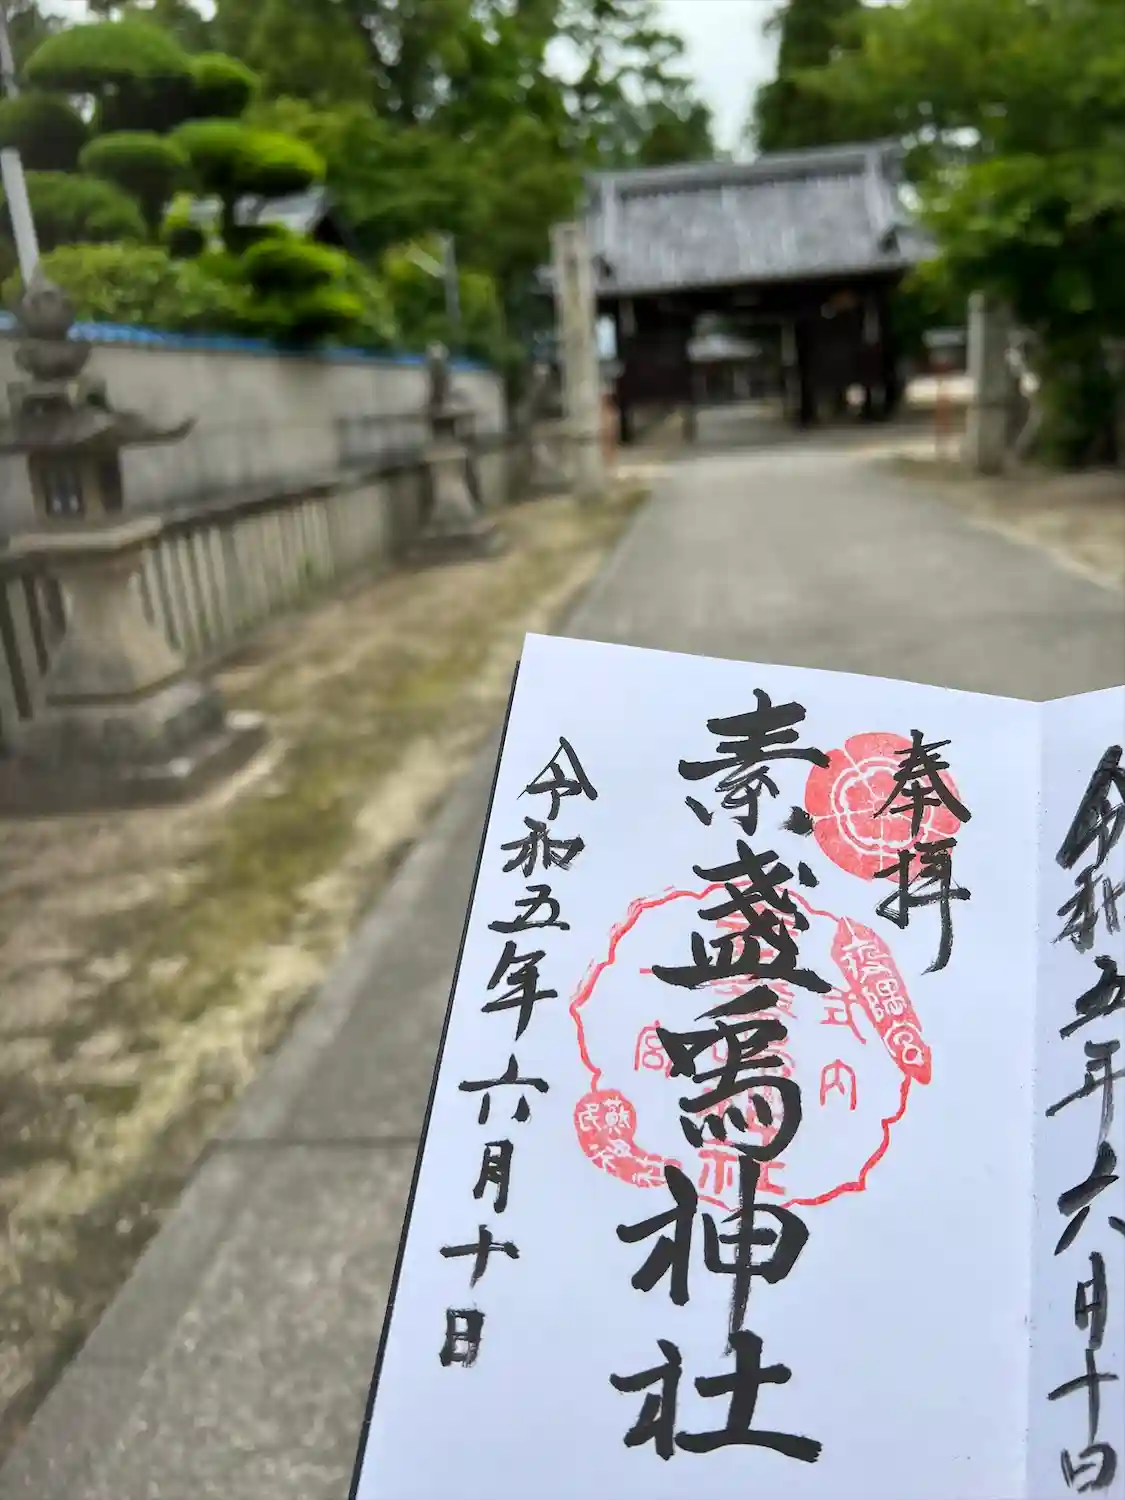 令和五年六月十日
奉拝
素盞嗚神社
式内
蘇民
令和五年六月十日